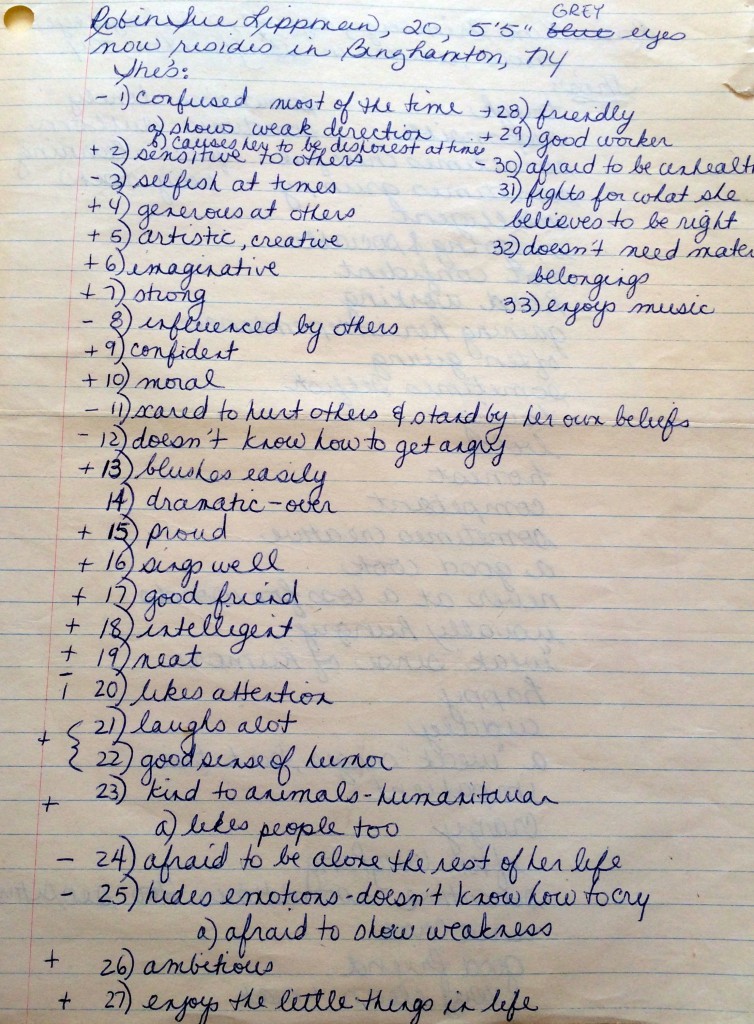 Robin Sue Lippman, 20, 5'5" blue GREY eyes
now resides in Binghamton, NY
She's:
- 1) confused most of the time
a) shows weak direction
b) causes her to be dishonest at times
+ 2) sensitive to others
- 3) selfish at times
+ 4) generous at others
+ 5) artistic, creative
+ 6) imaginative
+ 7) strong
- 8) influenced by others
+ 9) confident
+ 10) moral
- 11) scared to hurt others & stand by her own beliefs
- 12) doesn't know how to get angry
+ 13) blushes easily
14) dramatic - over
+ 15) proud
+ 16) sings well
+ 17) good friend
+ 18) intelligent
+ 19) neat
- 20) likes attention
+ { 21) laughs alot
22) good sense of humor
+ 23) kind to animals - humanitarian
a) likes people too
- 24) afraid to be alone the rest of her life
- 25) hides emotions - doesn't know how to cry
a) afraid to show weakness
+ 26) ambitious
+ 27) enjoys the little things in life
+ 28) friendly
+ 29) good worker
- 30) afraid to be unhealt
31) fights for what she
believes to be right
32) doesn't need mater
belongings
33) enjoys music